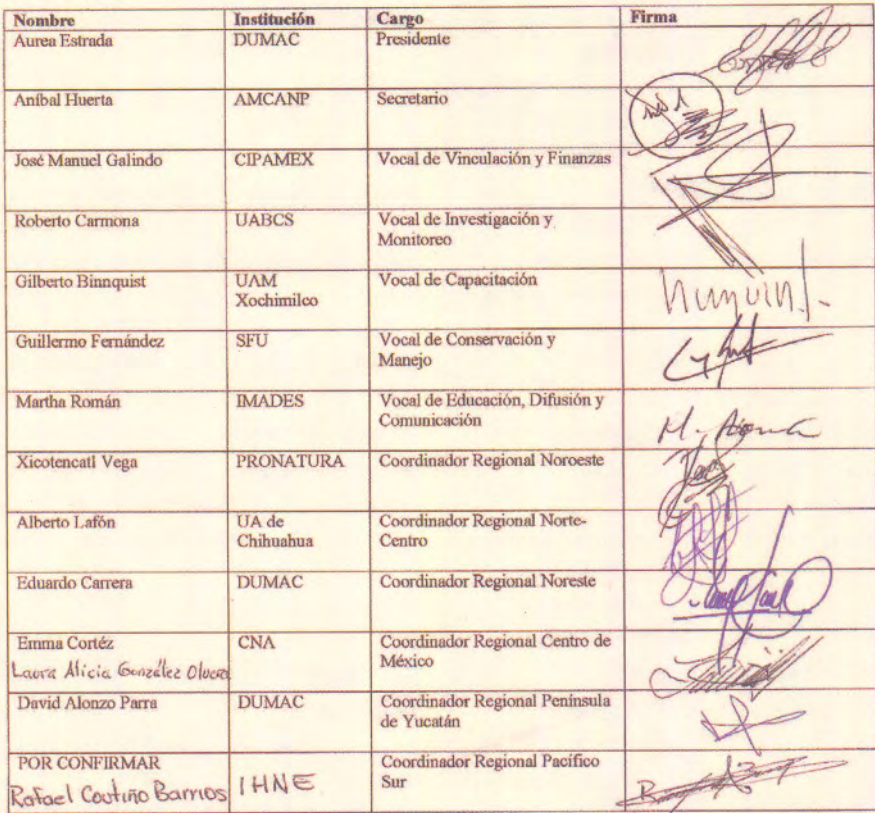 Nombre Institución Cargo Firma
Aurea Estrada DUMAC Presidente
Aníbal Huerta AMCANP Secretario
José Manuel Galindo CIPAMEX Vocal de Vinculación y Finanzas
Roberto Carmona UABCS Vocal de Investigación y
Monitoreo
Gilberto Binnquist UAM Vocal de Capacitación
Xochimilco
Guillermo Fernández SFU Vocal de Conservación y
Manejo
Martha Román IMADES Vocal de Educación, Difusión y
Comunicación
Xicotencatl Vega PRONATURA Coordinador Regional Noroeste
Alberto Lafón UA de Coordinador Regional Norte-
Chihuahua Centro
Eduardo Carrera DUMAC Coordinador Regional Noreste
Emma Cortéz CNA Coordinador Regional Centro de
Laura Alicia González Olvera México
David Alonzo Parra DUMAC Coordinador Regional Península
de Yucatán
POR CONFIRMAR Coordinador Regional Pacífico
Rafael Coutiño Barrios IHNE Sur